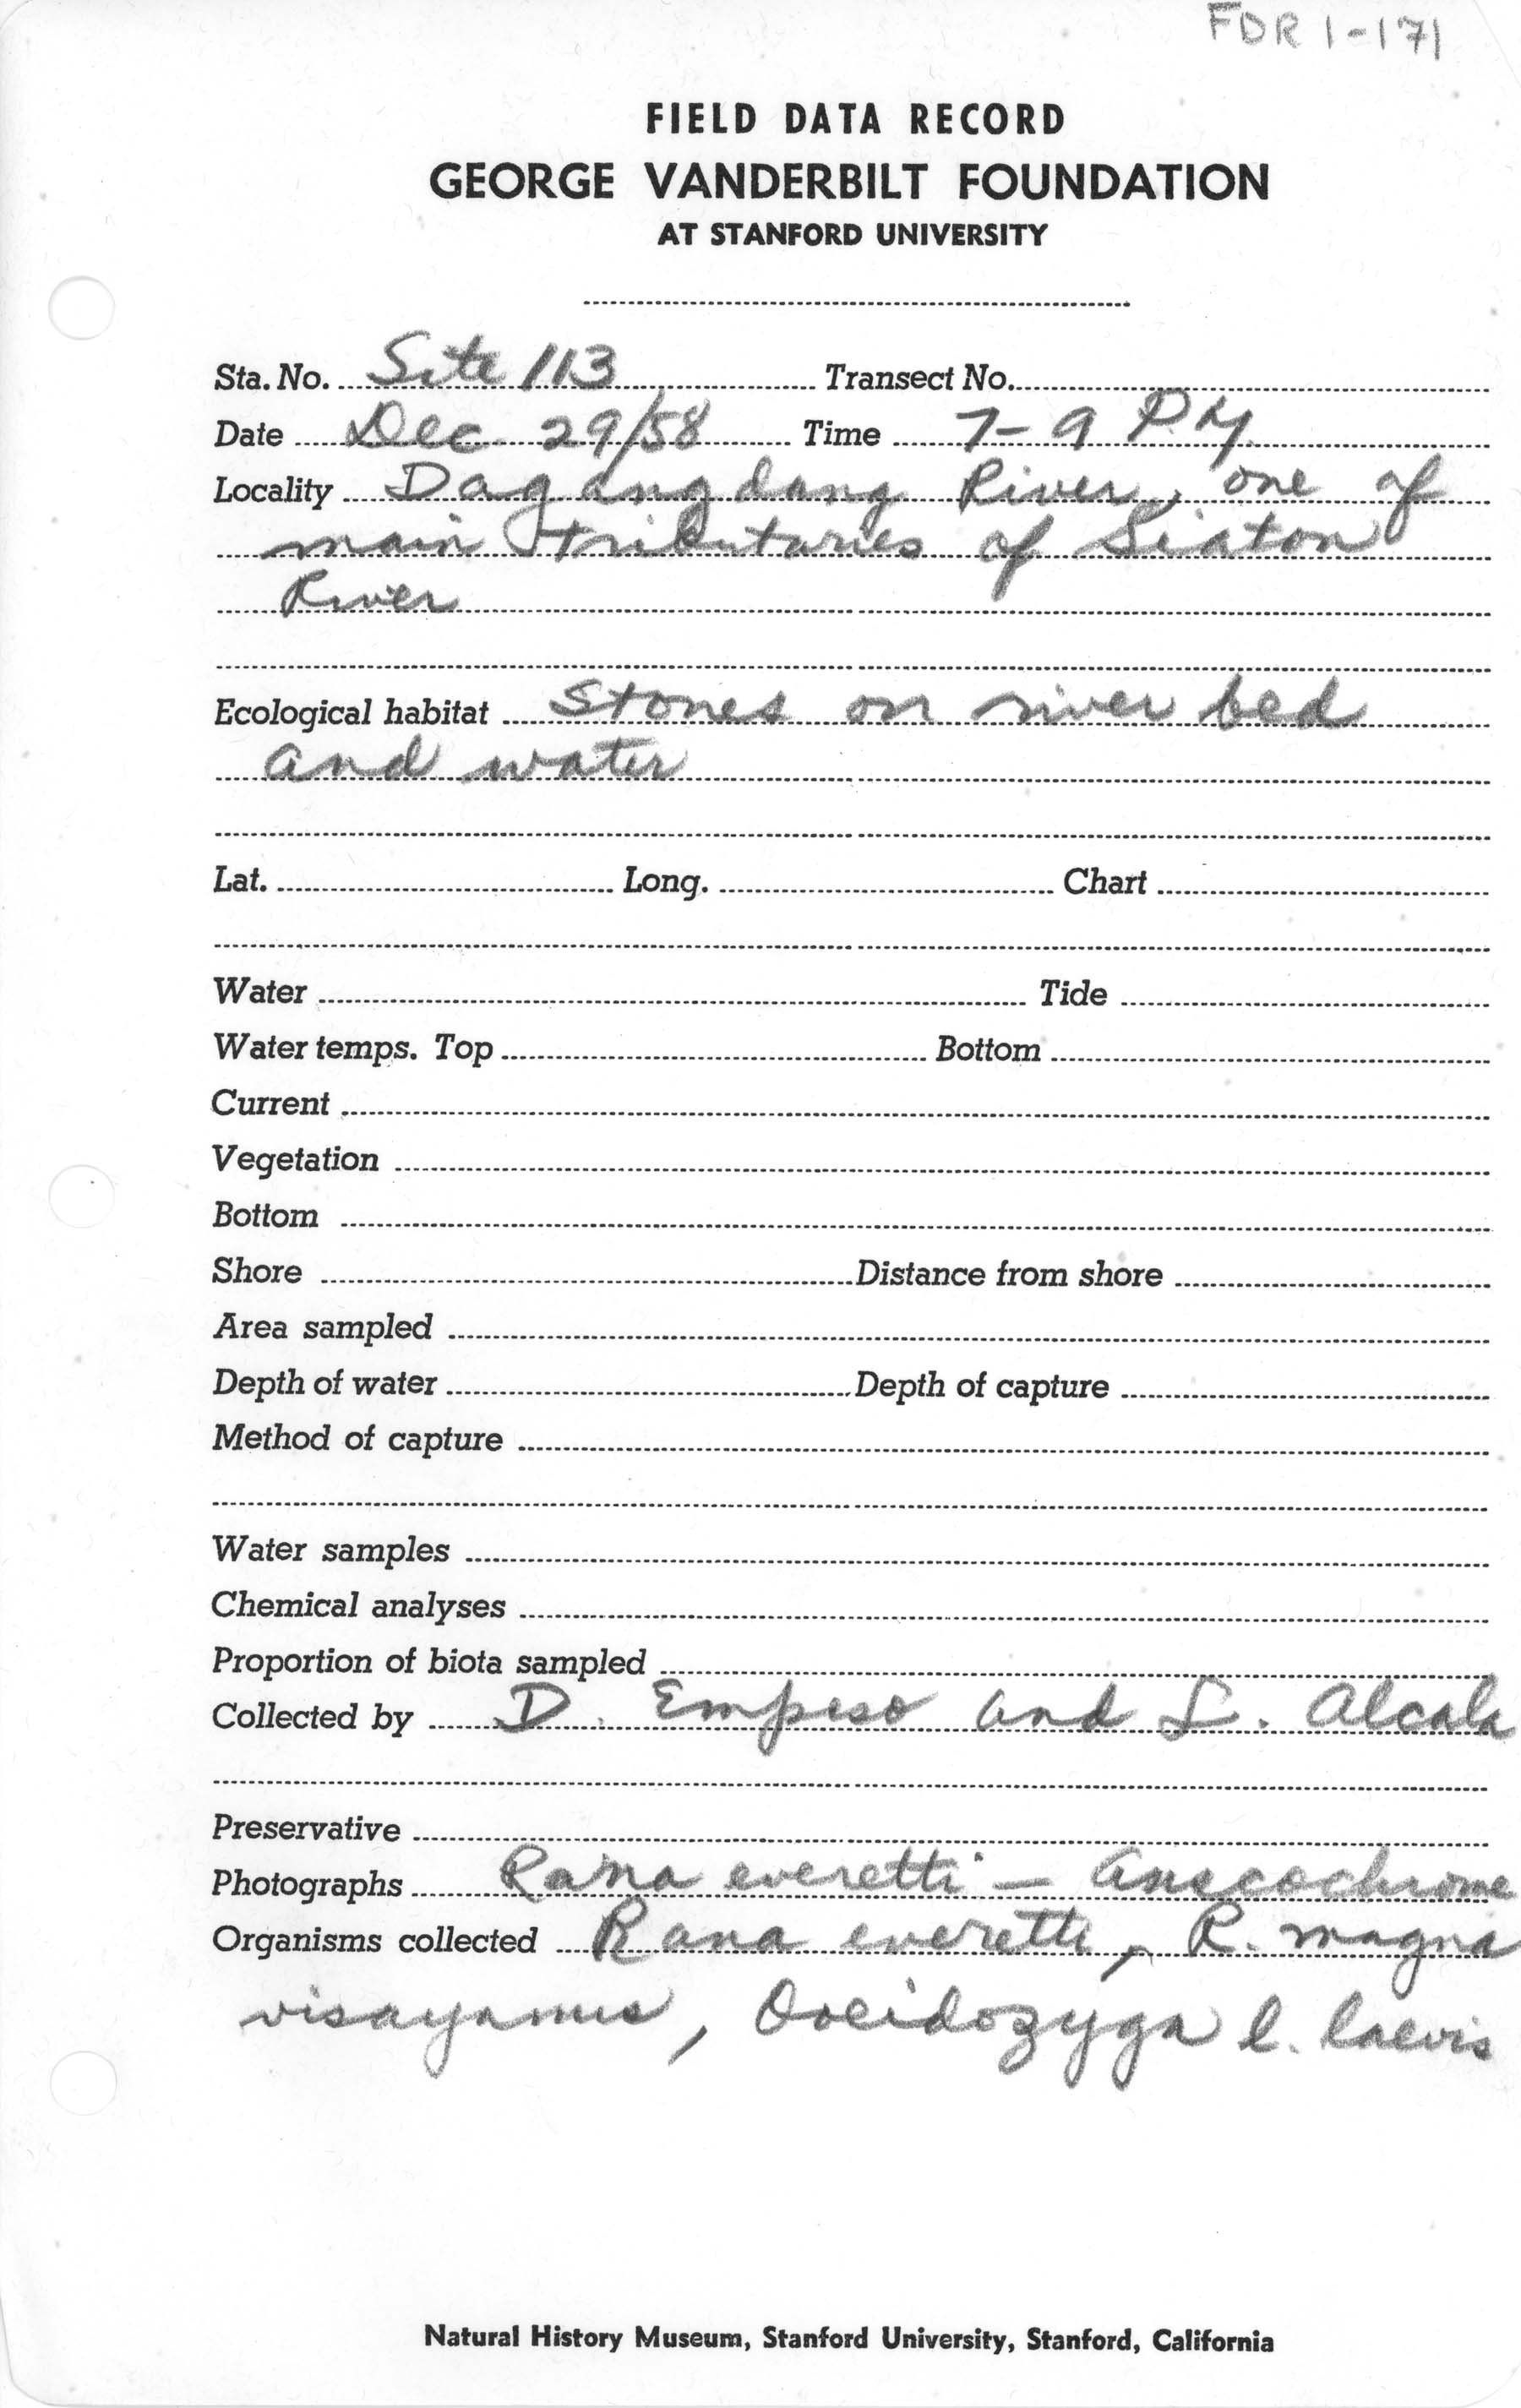 FDR 1-171
FIELD DATA RECORD
GEORGE VANDERBILT FOUNDATION
AT STANFORD UNIVERSITY
Sta. No. Site 113 Transect No.
Date Dec 29/58 Time 7-9 PM
Locality Dagangdang River, one of
main tributaries of Siaton
River
Ecological habitat Stones on river bed
and water
Lat. Long. Chart
Water Tide
Water temps. Top Bottom
Current
Vegetation
Bottom
Shore Distance from shore
Area sampled
Depth of water Depth of capture
Method of capture
Water samples
Chemical analyses
Proportion of biota sampled
Collected by D. Empeso and L. Alcala
Preservative
Photographs Rana everetti - Anscochrome
Organisms collected Rana everetti, R. magna
visayanus, Ooeidozyga l. laevis
Natural History Museum, Stanford University, Stanford, California